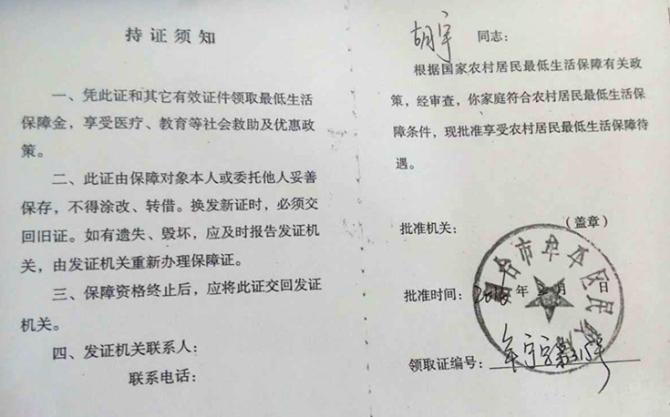 持证须知
一、凭此证和其它有效证件领取最低生活
保障金，享受医疗、教育等社会救助及优惠政
策。
二、此证由保障对象本人或委托他人妥善
保存，不得涂改、转借。换发新证时，必须交
回旧证。如有遗失、毁坏，应及时报告发证机
关，由发证机关重新办理保障证。
三、保障资格终止后，应将此证交回发证
机关。
四、发证机关联系人：
联系电话：
胡宇 同志：
根据国家农村居民最低生活保障有关政
策，经审查，你家庭符合农村居民最低生活保
障条件，现批准享受农村居民最低生活保障待
遇。
批准机关： （盖章）
烟台市牟平区民政
批准时间： 年 月 日
领取证编号：